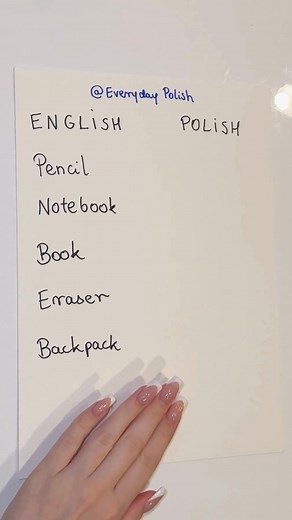 @Everyday Polish
ENGLISH POLISH
Pencil
Notebook
Book
Eraser
Backpack